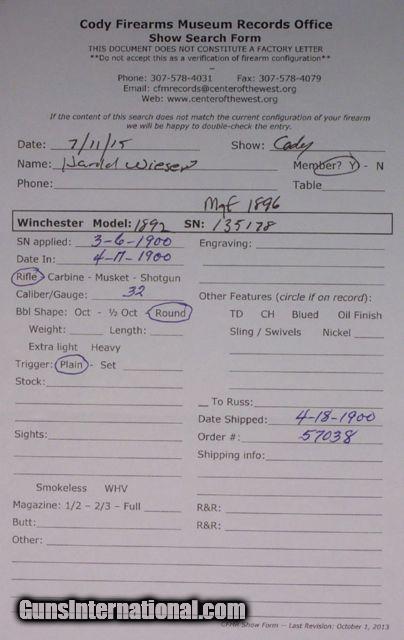 Cody Firearms Museum Records Office
Show Search Form
THIS DOCUMENT DOES NOT CONSTITUTE A FACTORY LETTER
**Do not accept this as a verification of firearm configuration**
~
Phone: 307-578-4031 Fax: 307-578-4079
Email: cfmrecords@centerofthewest.org
Web: www.centerofthewest.org
If the content of this search does not match the current configuration of your firearm
we will be happy to double-check the entry.
Date: 7/11/15 Show: Cody
Name: Harold Wieser Member? Y - N
Phone: Table
Mgf 1896
Winchester Model: 1892 SN: 135178
SN applied: 3-6-1900 Engraving:
Date In: 4-17-1900
Rifle - Carbine - Musket - Shotgun
Caliber/Gauge: 32 Other Features (circle if on record):
Bbl Shape: Oct - ½ Oct - Round TD CH Blued Oil Finish
Weight: Length: Sling / Swivels Nickel
Extra light Heavy
Trigger: Plain - Set
Stock:
To Russ:
Date Shipped: 4-18-1900
Sights: Order #: 57038
Shipping info:
Smokeless WHV
Magazine: 1/2 – 2/3 – Full R&R:
Butt: R&R:
Other:
GunsInternational.com
CFMR Show Form — Last Revision: October 1, 2013